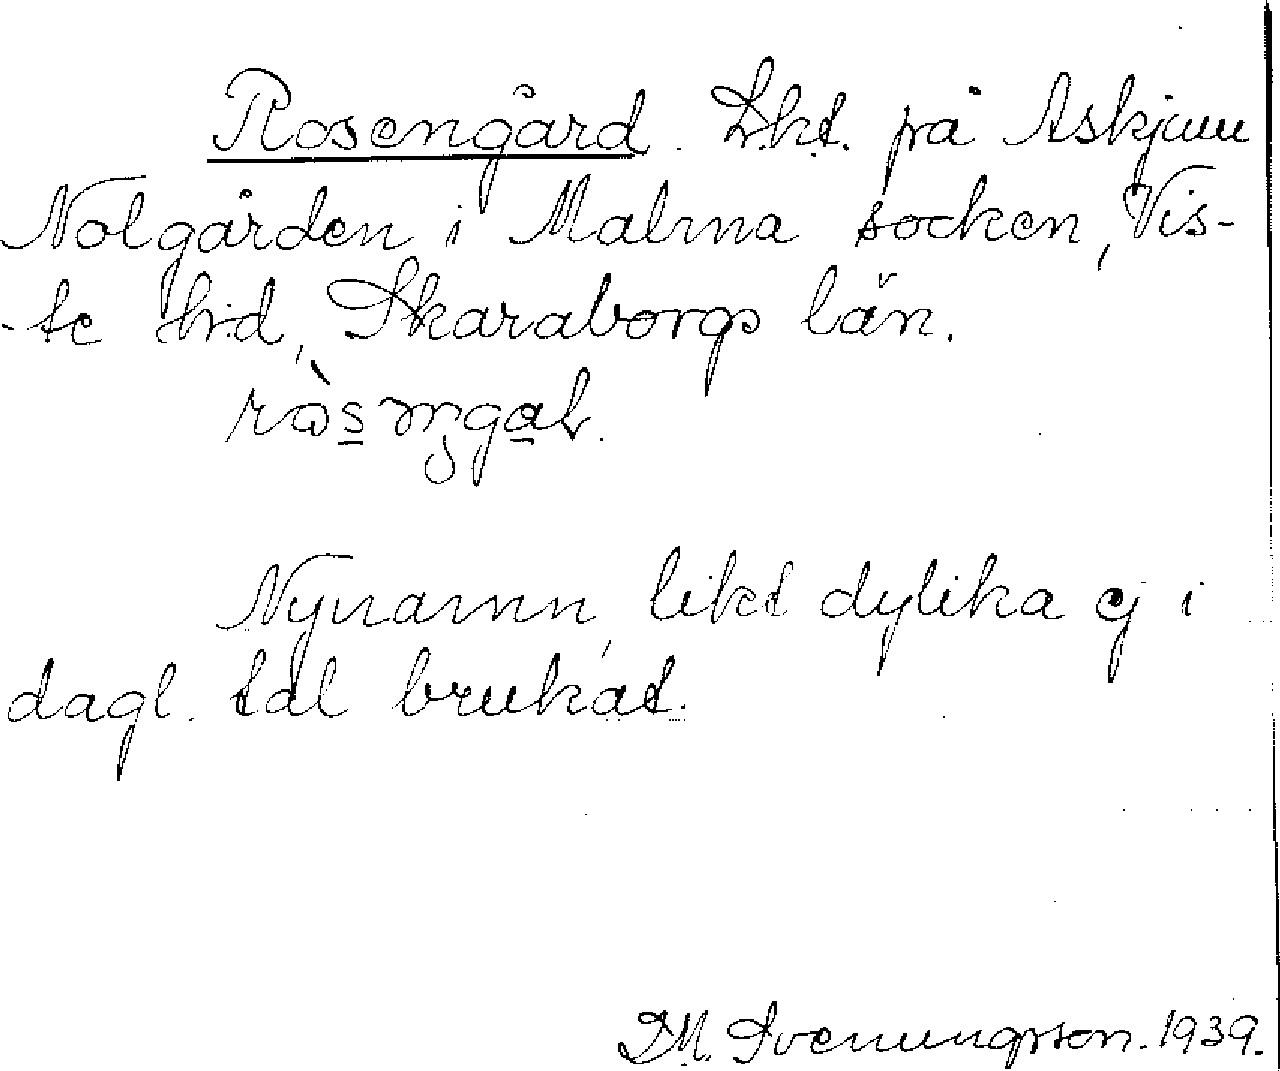 Rosengård. Lht. på Askjum
Nolgården i Malma socken, Vis-
-te hd, Skaraborgs län.

Nynamn, likt dylika ej i
dagl. tal brukat.
D.M. Svenungsson. 1939.